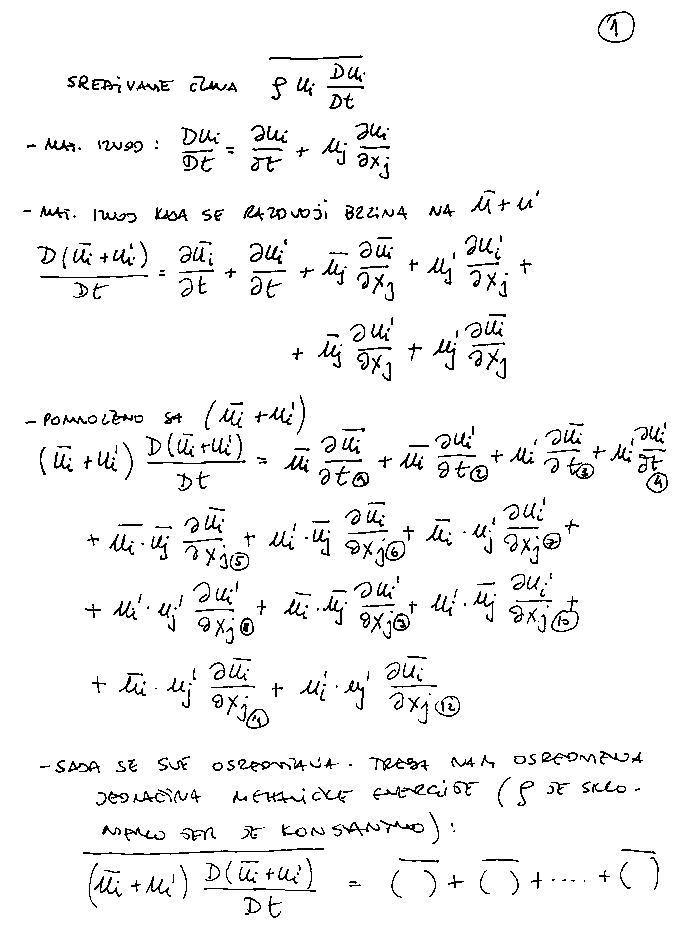 ①
SREĐIVANJE ČLANA $\overline{\rho u_i \frac{Du_i}{Dt}}$
- MAT. IZVOD : $\frac{Du_i}{Dt} = \frac{\partial u_i}{\partial t} + u_j \frac{\partial u_i}{\partial x_j}$
- MAT. IZVOD KADA SE RAZDVOJI BRZINA NA $\bar{u} + u'$
$\frac{D(\bar{u_i} + u_i')}{Dt} = \frac{\partial \bar{u_i}}{\partial t} + \frac{\partial u_i'}{\partial t} + \bar{u_j} \frac{\partial \bar{u_i}}{\partial x_j} + u_j' \frac{\partial u_i'}{\partial x_j} +$
$+ \bar{u_j} \frac{\partial u_i'}{\partial x_j} + u_j' \frac{\partial \bar{u_i}}{\partial x_j}$
- POMNOŽENO SA $(\bar{u_i} + u_i')$
$(\bar{u_i} + u_i') \frac{D(\bar{u_i} + u_i')}{Dt} = \bar{u_i} \frac{\partial \bar{u_i}}{\partial t}$ ① $+ \bar{u_i} \frac{\partial u_i'}{\partial t}$ ② $+ u_i' \frac{\partial \bar{u_i}}{\partial t}$ ③ $+ u_i' \frac{\partial u_i'}{\partial t}$ ④
$+ \bar{u_i} \cdot \bar{u_j} \frac{\partial \bar{u_i}}{\partial x_j}$ ⑤ $+ u_i' \cdot \bar{u_j} \frac{\partial \bar{u_i}}{\partial x_j}$ ⑥ $+ \bar{u_i} \cdot u_j' \frac{\partial u_i'}{\partial x_j}$ ⑦ $+$
$+ u_i' \cdot u_j' \frac{\partial u_i'}{\partial x_j}$ ⑧ $+ \bar{u_i} \cdot \bar{u_j} \frac{\partial u_i'}{\partial x_j}$ ⑨ $+ u_i' \cdot \bar{u_j} \frac{\partial u_i'}{\partial x_j}$ ⑩ $+$
$+ \bar{u_i} \cdot u_j' \frac{\partial \bar{u_i}}{\partial x_j}$ ⑪ $+ u_i' \cdot u_j' \frac{\partial \bar{u_i}}{\partial x_j}$ ⑫
- SADA SE SVE OSREDNJAVA. TREBA NAM OSREDNJENA
JEDNAČINA MEHANIČKE ENERGIJE ($\rho$ JE SKLO-
NJENO JER JE KONSANTNO) :
$\overline{(\bar{u_i} + u_i') \frac{D(\bar{u_i} + u_i')}{Dt}} = \overline{(\ )} + \overline{(\ )} + \cdots + \overline{(\ )}$